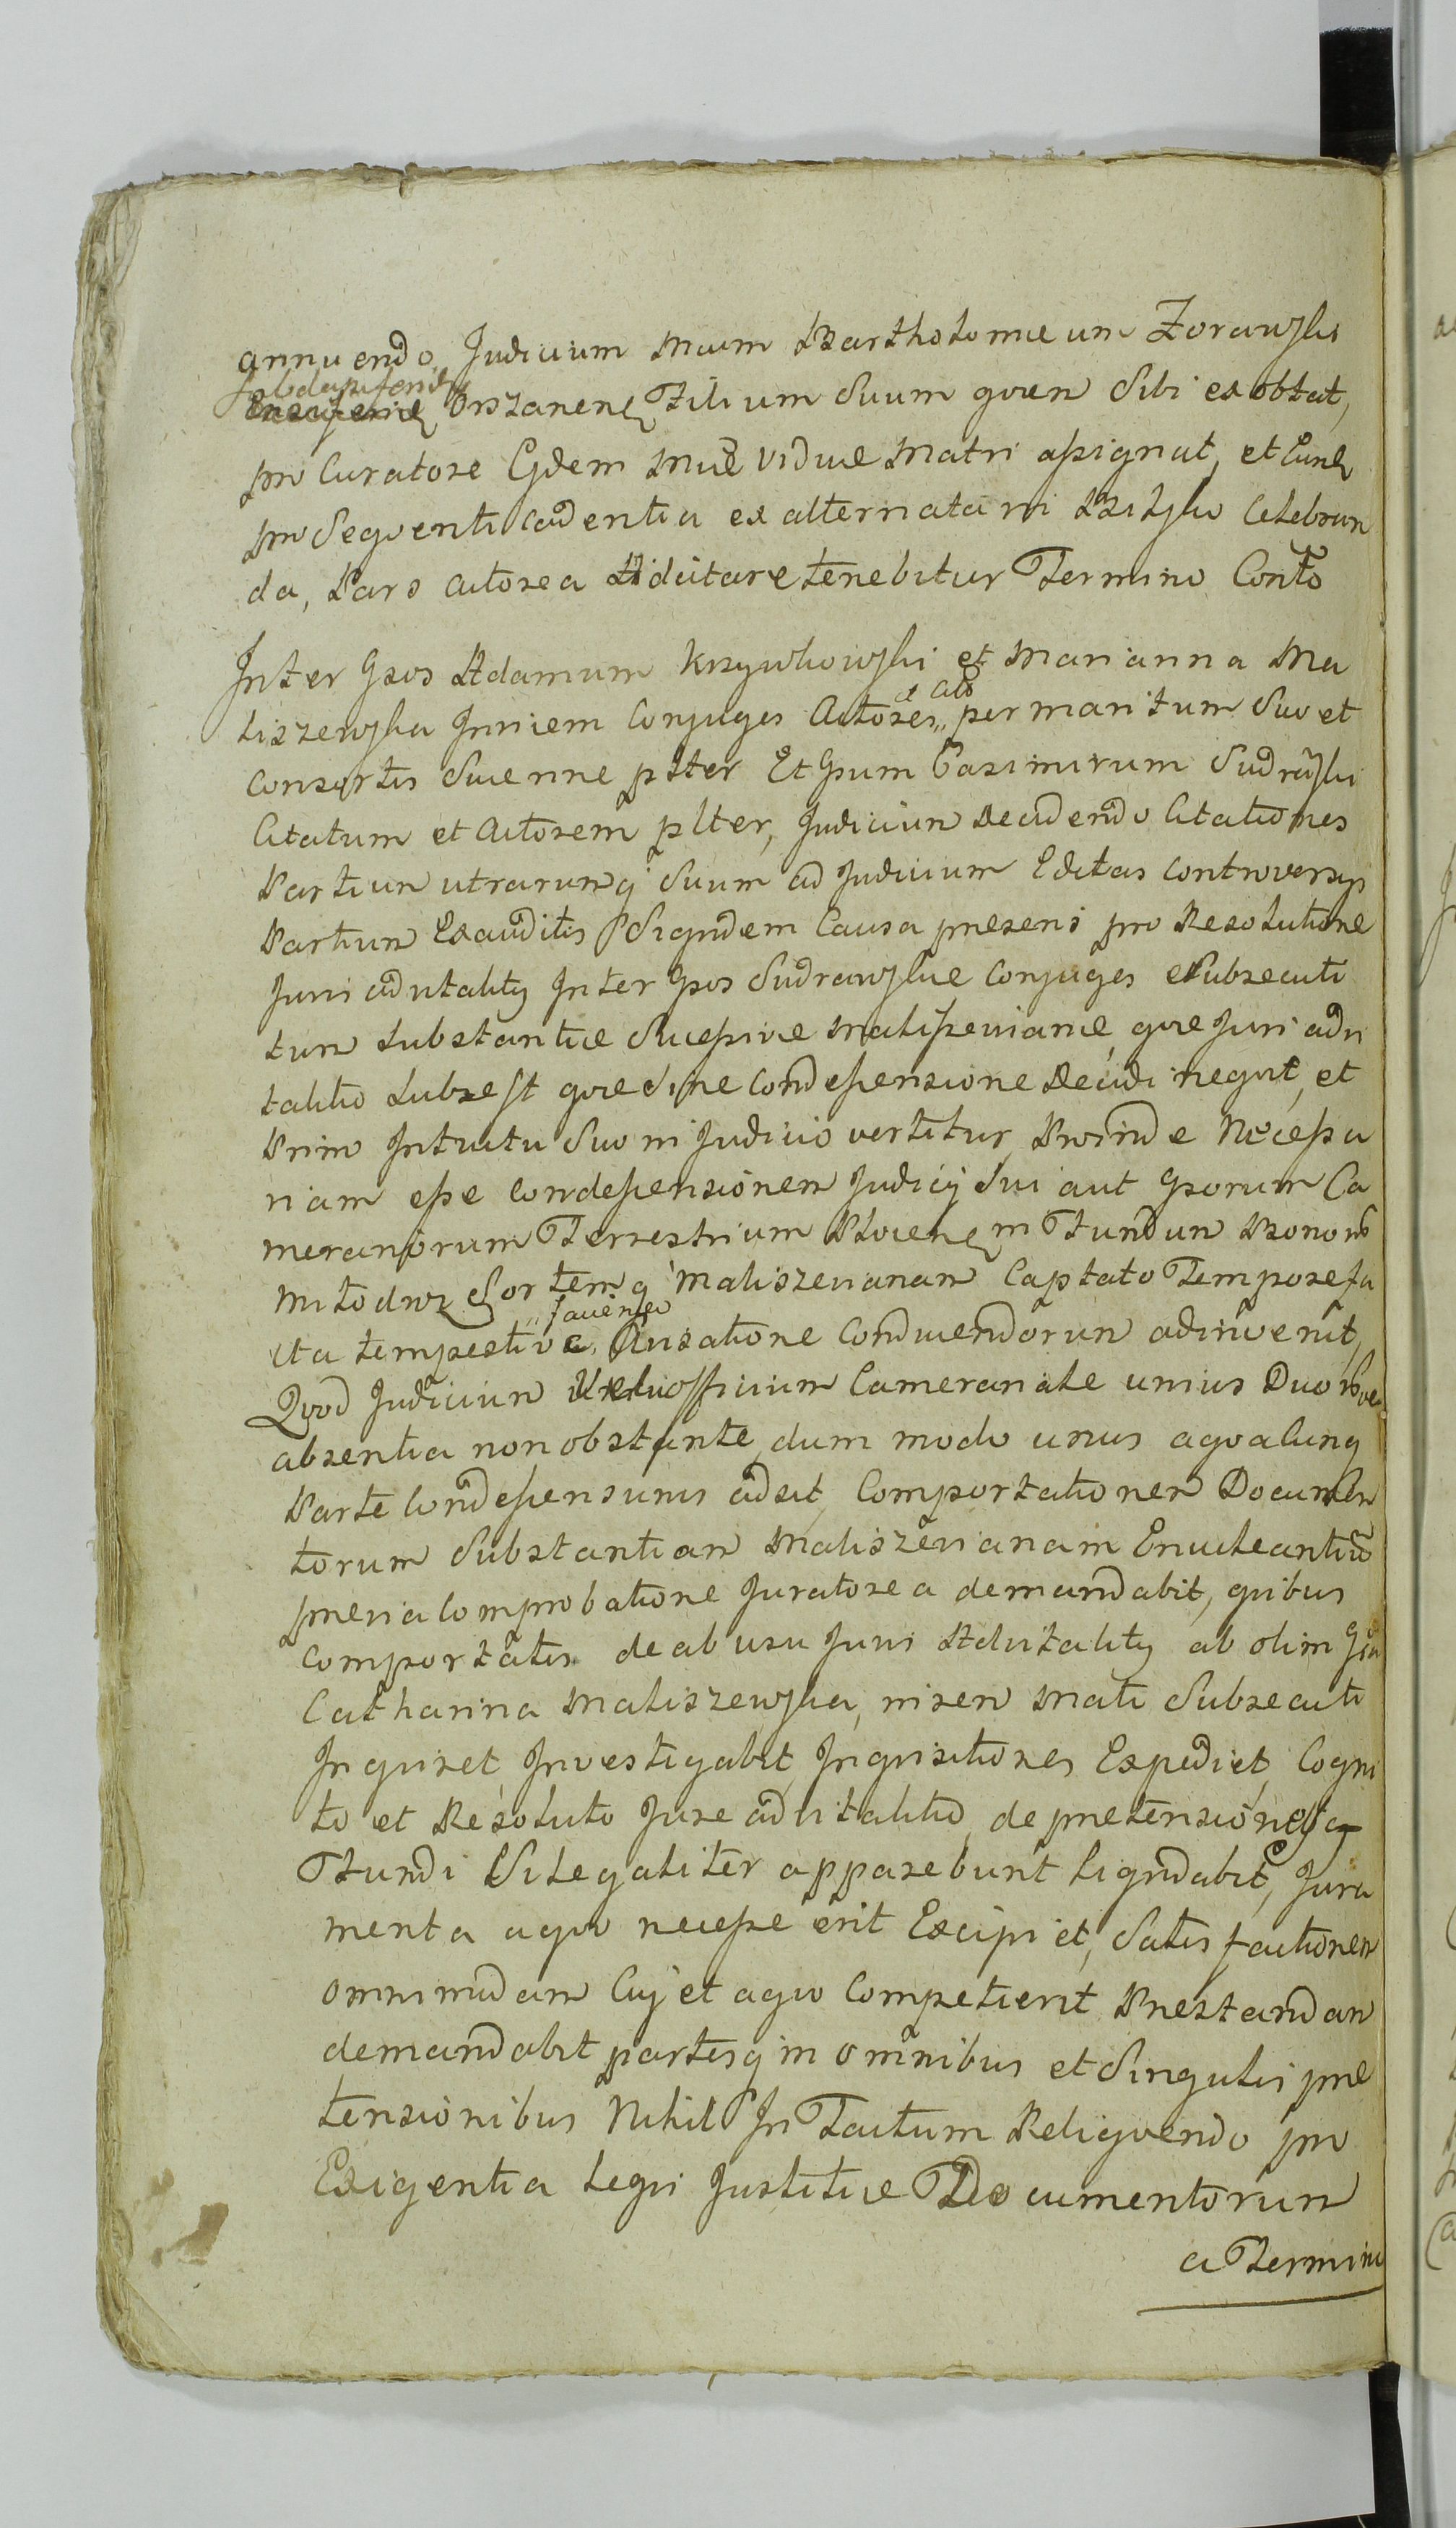 annuendo Judicium Mcum Bartholomæum Zorawski
subdapiferid
Orszanen Filium Suum qvem Sibi exobtat,
pro Curatore Ejdem Mcæ viduæ Matri assignat, et Cum
pro Seqventi cadentia ex alternata ni Bilsko Celebran
da, Pars actorea Adcitare tenebitur Termino Conto
Inter Gsos Adamum Krzywkowski et Marianna Ma
et Cito
liszewska Inniem Conjuges Actores „ per maritum Suo et
Consortis Suæ nne plter Et Gsum Casimirum Sudrawski
Citatum et Actorem plter, Judicium Decidendo Citationes
Partium utrarumq Suum ad Judicium Editas controversys
Partium Exauditis Siqvidem Causa præsens pro Resolutione
Juris advitality Inter Gsos Sudrawskie Conjuges Subsecuti
tum Substantiæ Successivæ Maliszevianæ, qvæ Juri advi
talitio Subsest qvæ Sine Condescensione Decidi neqvit, et
Primo Intuitu Suo ni Judicio vertitur, Proinde Necessa
riam esse Condescensionem Judicij Sui aut Gsorum Ca
merariorum Terrestrium Plocen in Fundum Bonorum
Mitodroz Sortemq Maliszevianam Captato Tempore fa
„ faciendo
cta tempestive Avisatione Conducendorum adinvenit,
Qvod Judicium officium Camerariale unius Duorve
absentia non obstante, dum modo unus aqvacunq
Parte Condescensuris adsit, Comportationem Documen
torum Substantiam Maliszevianam Enucleantium
prævia Comprobatione Juratorea demandabit, qvibus
Comportatis de abusu Juris Advitality ab olim Gsa
Catharina Maliszewska, nisen Mati Subsecuti
Inqviret, Investigabit, Inqvisitiones Expediet, Cogni
to et Resoluto Jure advitalitio, de prætensionibq
Fundi Si Legaliter apparebunt Liqvidabit, Jura
menta aqvo necesse erit Excipiet, Satisfactionem
omnimodam Cuj et aqvo Competierit Præstandam
demandabit partesq in omnibus et Singulis præ
tensionibus Nihil In Tactum Reliqvendo pro
Exigentia Legis Justitiæ Documentorum
a Termino